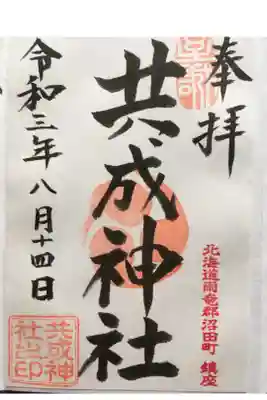 奉拝
北海道雨竜郡沼田町 鎮座
共成神社
令和三年八月十四日
共成神
社之印